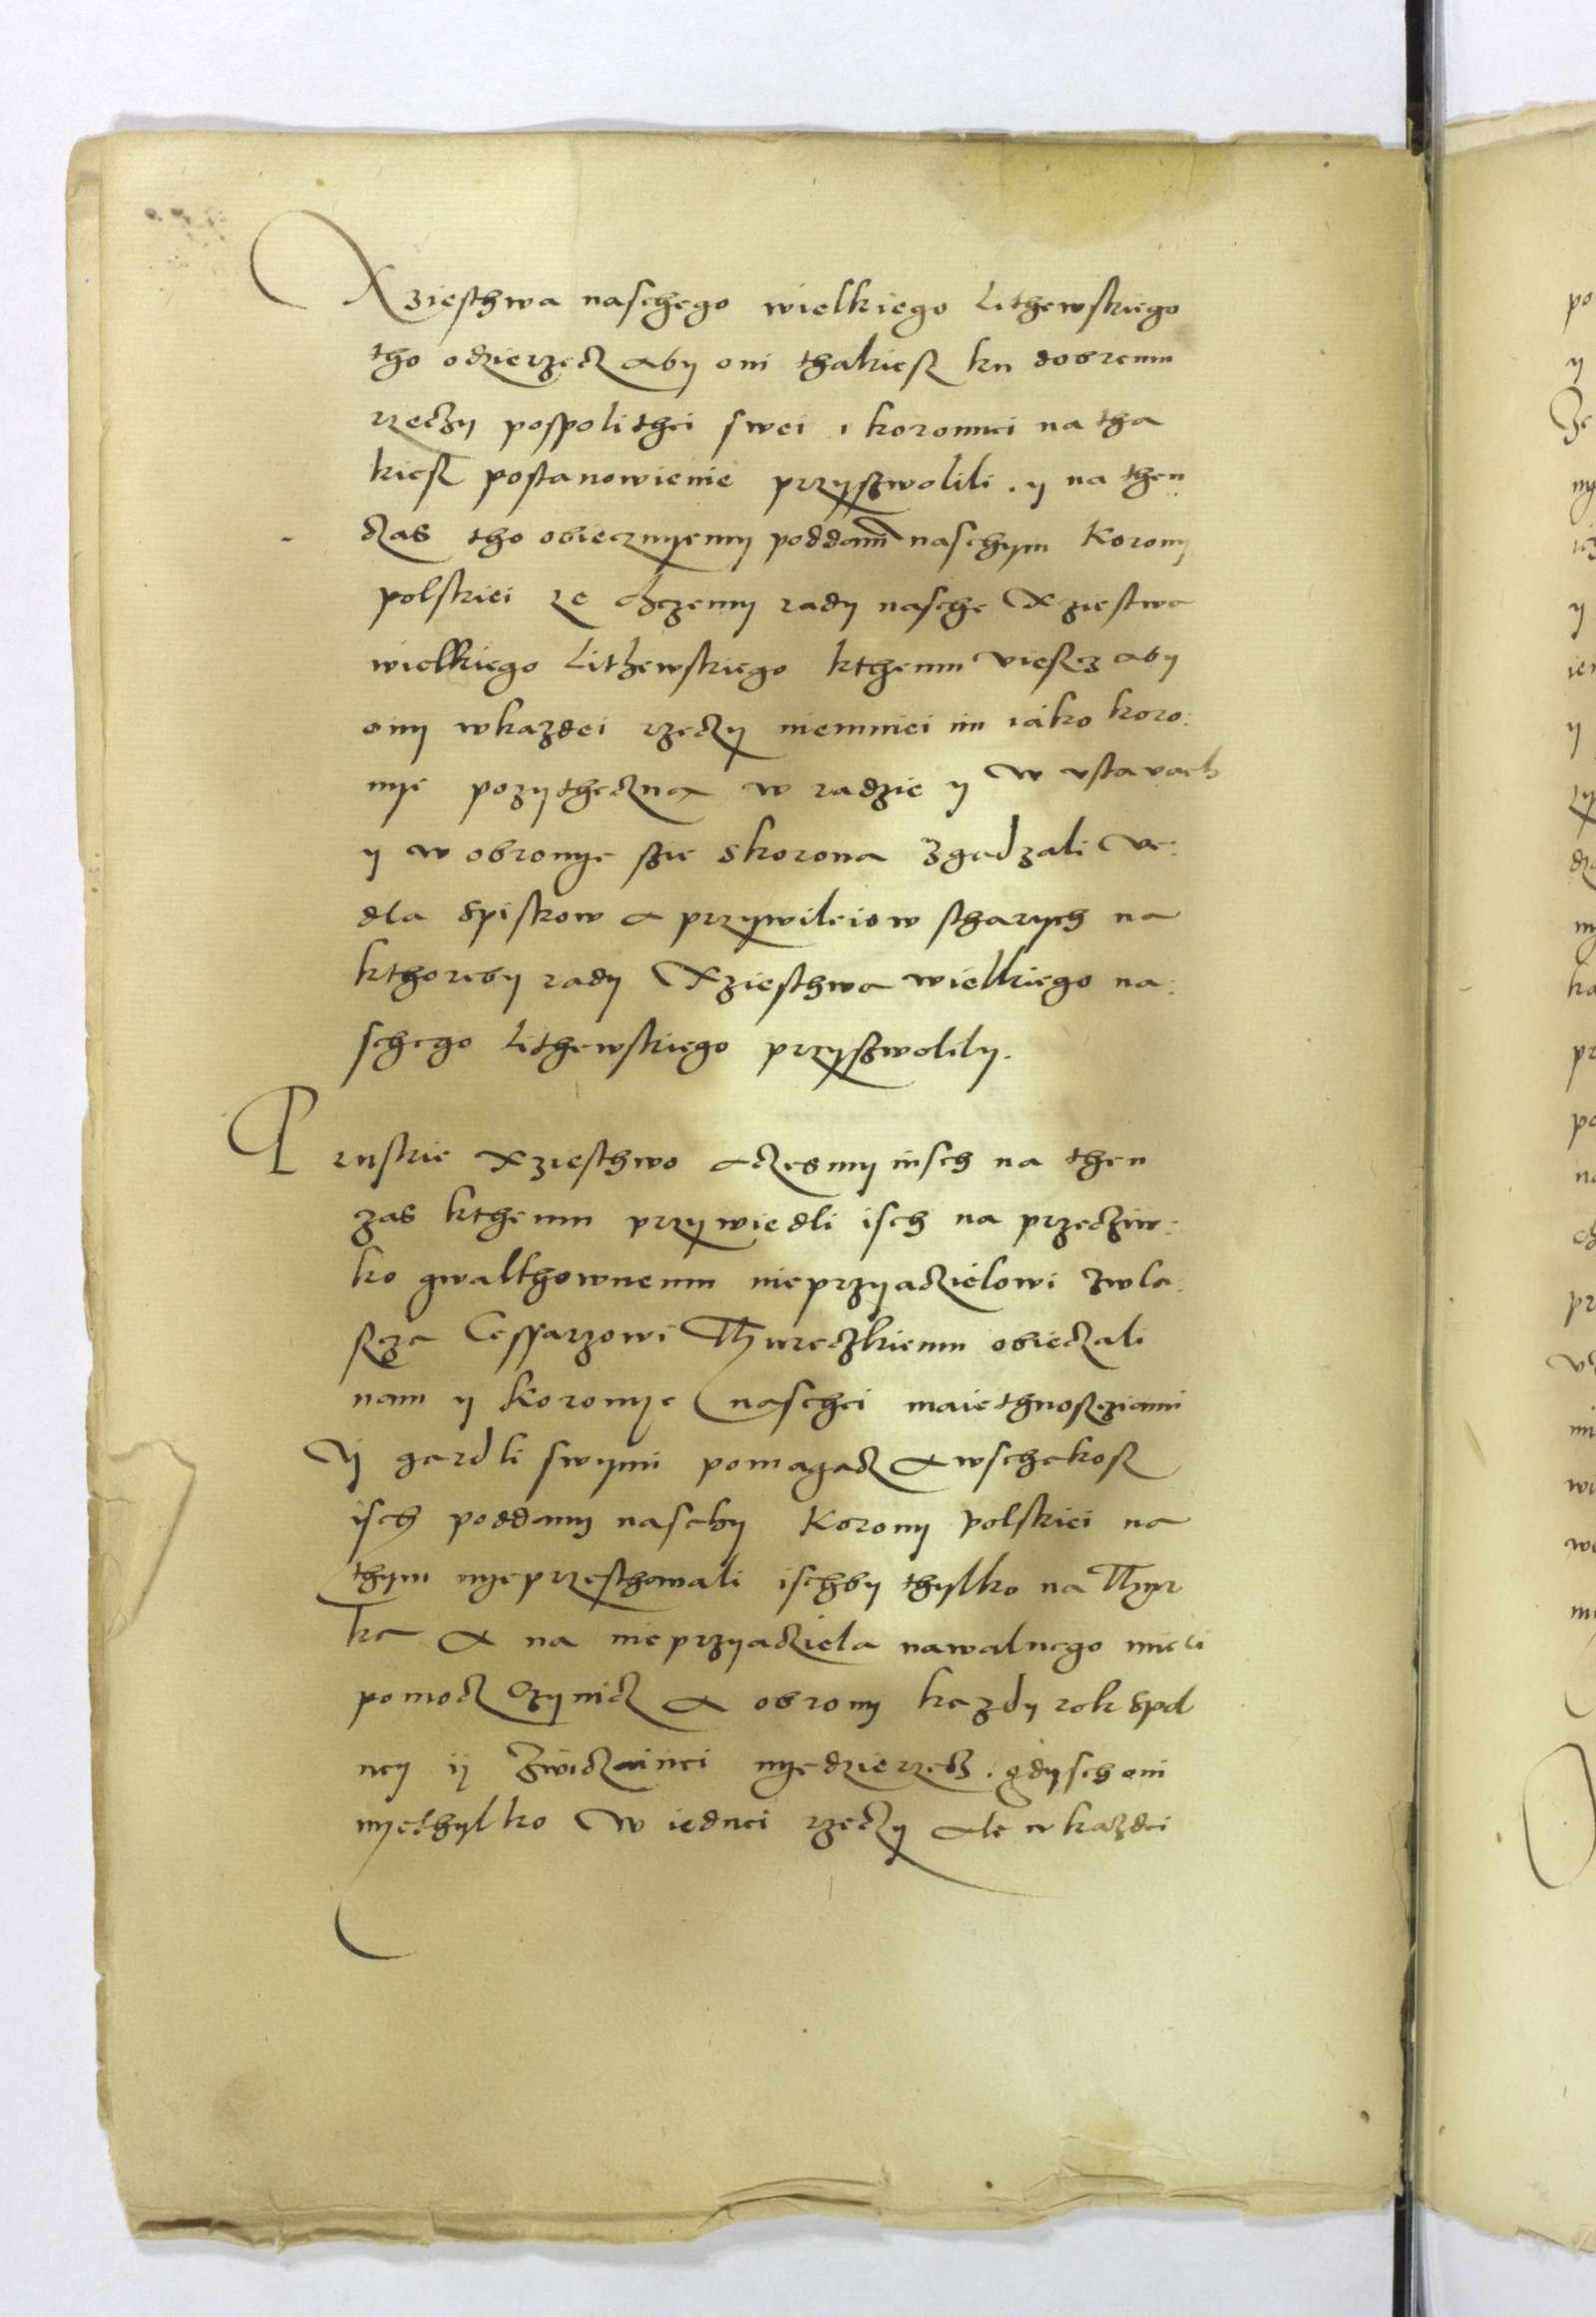 Xziesthwa naschego wielkiego Lithewskiego
tho odzierzecz aby oni thakiesz ku dobremu
rzeczy pospolithei swei i koronnei na tha
kiesz postanowienie przyszwolili . y na then
czas tho obiecznyemy poddanim naschym Korony
polskiei ze chczemy rady nasche Xziestwa
wielkiego Lithewskiego kthemu viescz aby
ony wkazdei rzeczy niemniei im iako koro:
nye pozytheczna w radzie y w ustavach
y w obronye szie skorona zgadzali Ve:
dla spiskow a przywileiow starych na
kthoreby rady Xziesthwa wielkiego na:
schego Lithewskiego przyszwolily.
Pruskie Xziesthwo aczesmy iusch na then
zas kthemu przywiedli isch na przecziw:
ko gwalthownemu nieprzyaczielowi zwla:
szcza Cessarzowi Thureczkiemu obieczali
nam y Koronye naschei maiethnoszcziami
Y gardli swymi pomagacz a wschakosz
isch poddany naschy Korony polskiei na
thym nyeprzesthawali ischby thylko na Thur
ka a na nieprzyacziela nawalnego mieli
pomocz czynicz a obrony kazdy rok spol
ney y zwiczainei nyedzierzecz . gdysch oni
nyethylko w iednei rzeczy ale wkazdei